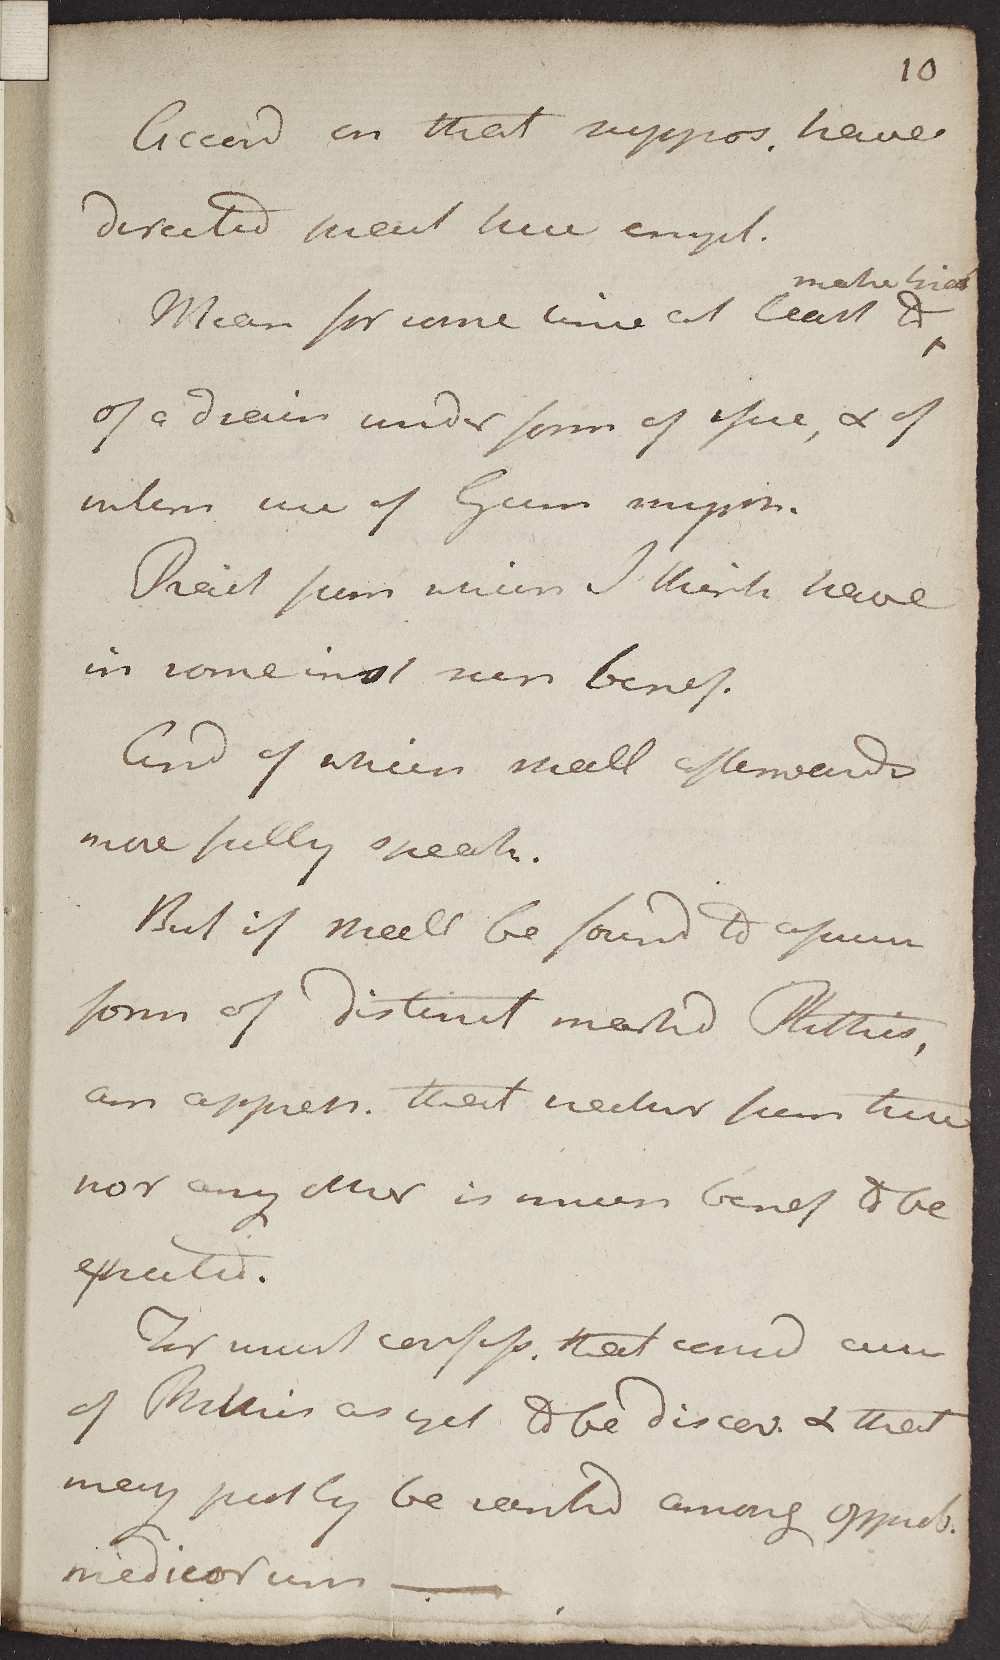 10
Accord on that suppos. have
directed pract here empl.
make trial
Mean for some time at least to
of a drain under form of issue, & of
intern use of Gum myrrh.
Pract from which I think have
in some inst seen benef.
And of which shall afterwards
more fully speak.
But if shall be found to assum
form of distinct markd Phthisis,
am appreh. that neither from these
nor any other is much benef to be
expected.
For must confess. that cound cure
of Phthisis as yet to be discov. & that
may justly be rankd among opprob.
medicorum